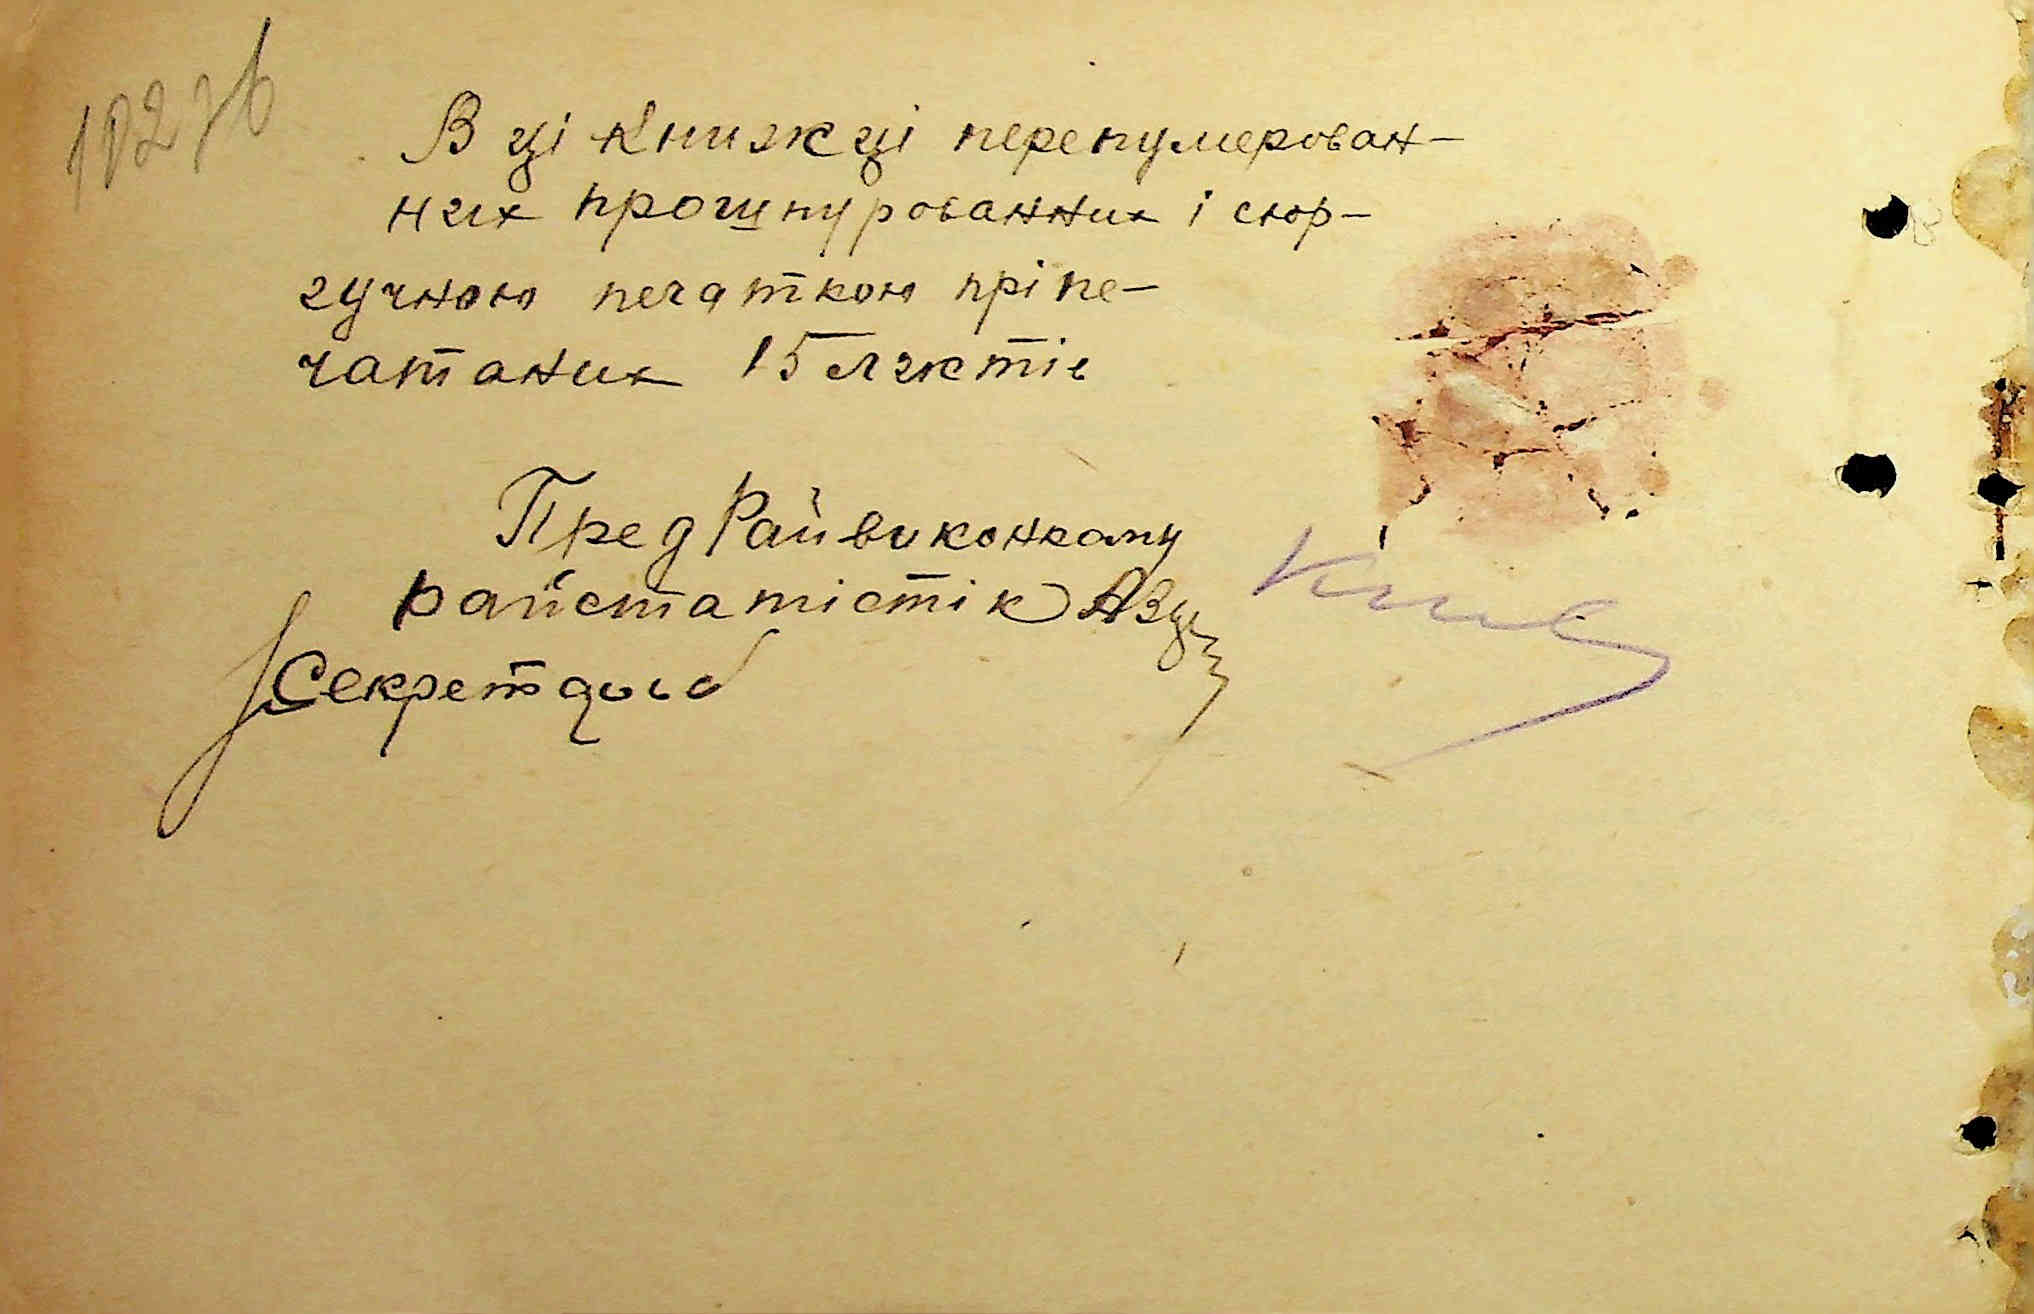 В ці книжці перенумерован-
них прошнурованних і сюр-
гучною печаткою пріпе-
чатаних 15 листів
Пред Райвиконкому
райстатістік
Секретарь